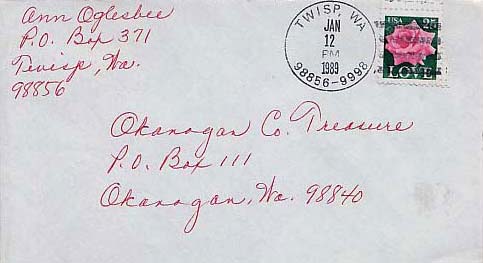 Ann Oglesbee
P.O. Box 371
Twisp, Wa.
98856
TWISP, WA
JAN
12
PM
1989
98856-9998
USA 25
LOVE
Okanogan Co. Treasure
P.O. Box 111
Okanogan, Wa. 98840